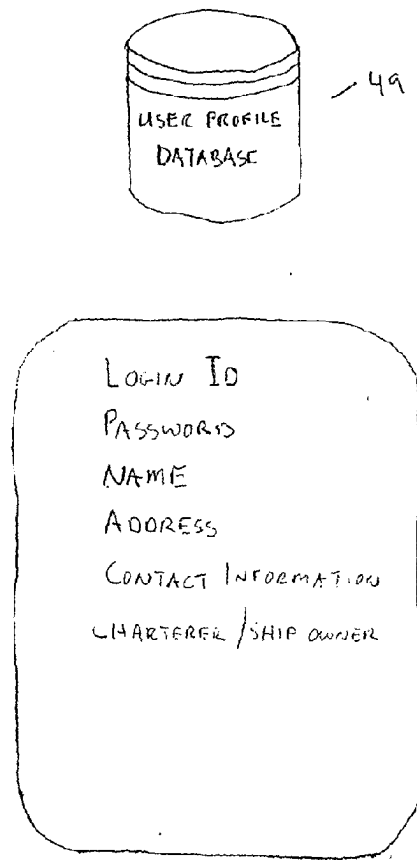 49
USER PROFILE
DATABASE
LOGIN ID
PASSWORD
NAME
ADDRESS
CONTACT INFORMATION
CHARTERER / SHIP OWNER